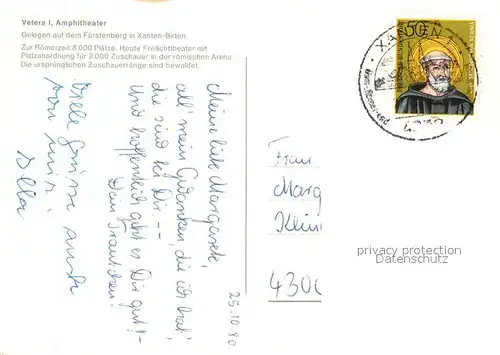 Vetera I, Amphitheater
Gelegen auf dem Fürstenberg in Xanten-Birten.
Zur Römerzeit 8 000 Plätze. Heute Freilichttheater mit
Platzanordnung für 2.000 Zuschauer in der römischen Arena.
Die ursprünglichen Zuschauerränge sind bewaldet.
Meine liebe Margarete,
all' mein Gedanken, die ich hab',
die sind bei Dir. --
Und hoffentlich geht es Dir gut! -
Dein Trautchen.
Viele Grüsse auch
von mir.
25.10.80
50
XANTEN
4232
Frau
Marg
Klein
4300
privacy protection
Datenschutz